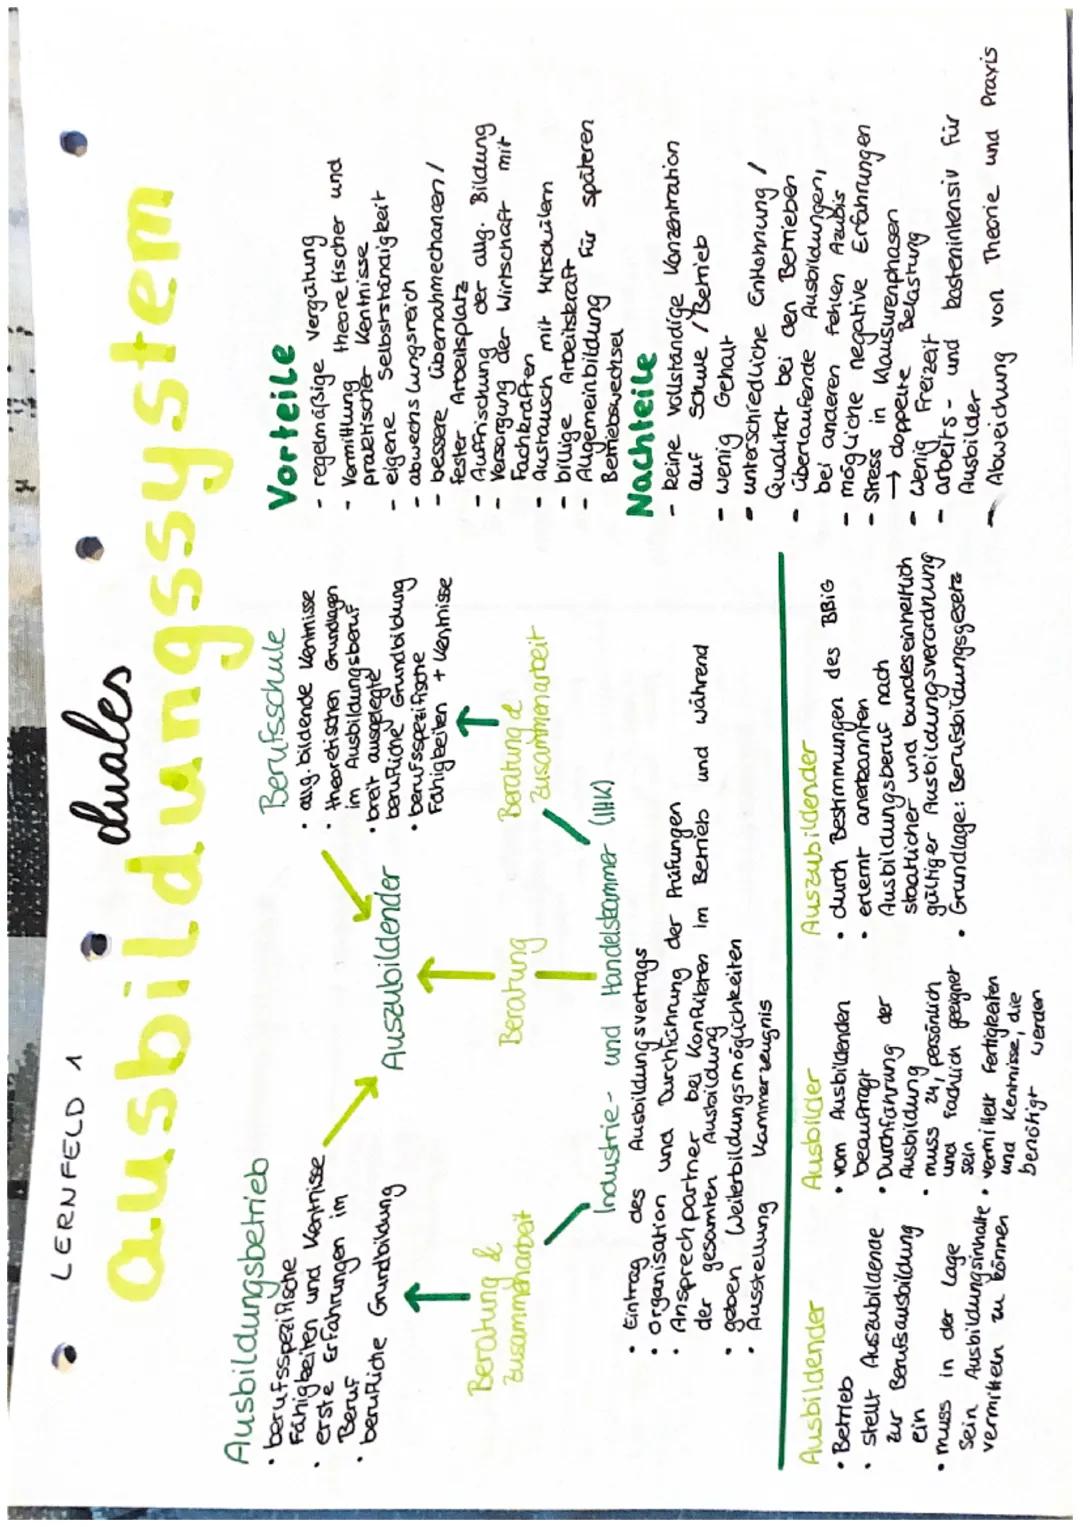 LERNFELD 1
duales
Ausbildungssystem
Ausbildungsbetrieb
• berufsspezifische
Fähigkeiten und Kentnisse
• erste Erfahrungen im
Beruf
• berufliche Grundbildung
Auszubildender
Berufsschule
• allg. bildende Kentnisse
• theoretischen Grundlagen
im Ausbildungsberuf
• breit ausgelegte
berufliche Grundbildung
• berufsspezifische
Fähigkeiten + Kentnisse
Beratung &
Zusammenarbeit
Beratung
Beratung &
Zusammenarbeit
Industrie- und Handelskammer (IHK)
• Eintrag des Ausbildungsvertrags
• Organisation und Durchführung der Prüfungen
• Ansprechpartner bei Konflikten im Betrieb und während
der gesamten Ausbildung
• geben Weiterbildungsmöglichkeiten
• Ausstellung Kammerzeugnis
Vorteile
- regelmäßige Vergütung
- Vermittlung theoretischer und
praktischer Kentnisse
- eigene Selbstständigkeit
- abwechslungsreich
- bessere Übernahmechancen /
fester Arbeitsplatz
- Auffrischung der allg. Bildung
- Versorgung der Wirtschaft mit
Fachkräften
- Austausch mit Mitschülern
- billige Arbeitskraft
- Allgemeinbildung für späteren
Betriebswechsel
Nachteile
- keine vollständige Konzentration
auf Schule / Betrieb
- wenig Gehalt
- unterschiedliche Entlohnung /
Qualität bei den Betrieben
- überlaufende Ausbildungen,
bei anderen fehlen Azubis
- mögliche negative Erfahrungen
- Stress in Klausurenphasen
→ doppelte Belastung
- Wenig Freizeit
- arbeits- und kostenintensiv für
Ausbilder
- Abweichung von Theorie und Praxis
Ausbildender
• Betrieb
• stellt Auszubildende
zur Berufsausbildung
ein
• muss in der Lage
sein Ausbildungsinhalte
vermitteln zu können
Ausbilder
• vom Ausbildenden
beauftragt
• Durchführung der
Ausbildung
• muss 24, persönlich
und fachlich geeignet
sein
• vermittelt Fertigkeiten
und Kentnisse, die
benötigt werden
Auszubildender
• durch Bestimmungen des BBiG
• erlernt anerkannten
Ausbildungsberuf nach
staatlicher und bundeseinheitlich
gültiger Ausbildungsverordnung
• Grundlage: Berufsbildungsgesetz